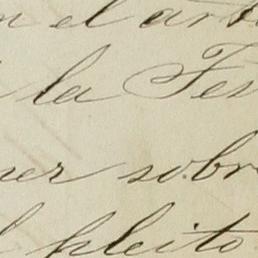 n el art
la Tes
ner sobre
l pleito